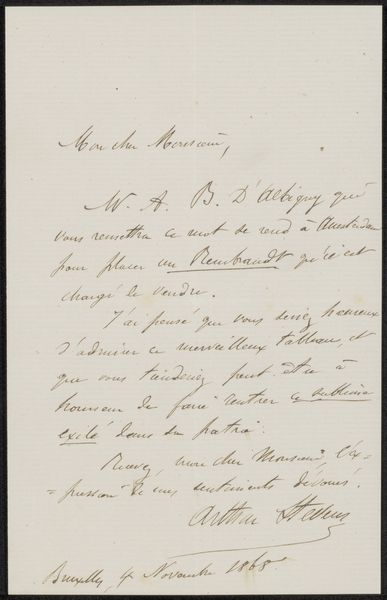 Mon cher Monsieur,
M. A. B. D'Albigny qui
vous remettra ce mot se rend à Amsterdam
pour placer un Rembrandt qu'il est
chargé de vendre.
J'ai pensé que vous seriez heureux
d'admirer ce merveilleux tableau, et
que vous tiendriez peut être à
honneur de faire rentrer ce sublime
exilé dans sa patrie.
Recevez, mon cher Monsieur, l'ex-
=pression de mes sentiments dévoués.
Arthur Stevens
Bruxelles, 4 Novembre 1868